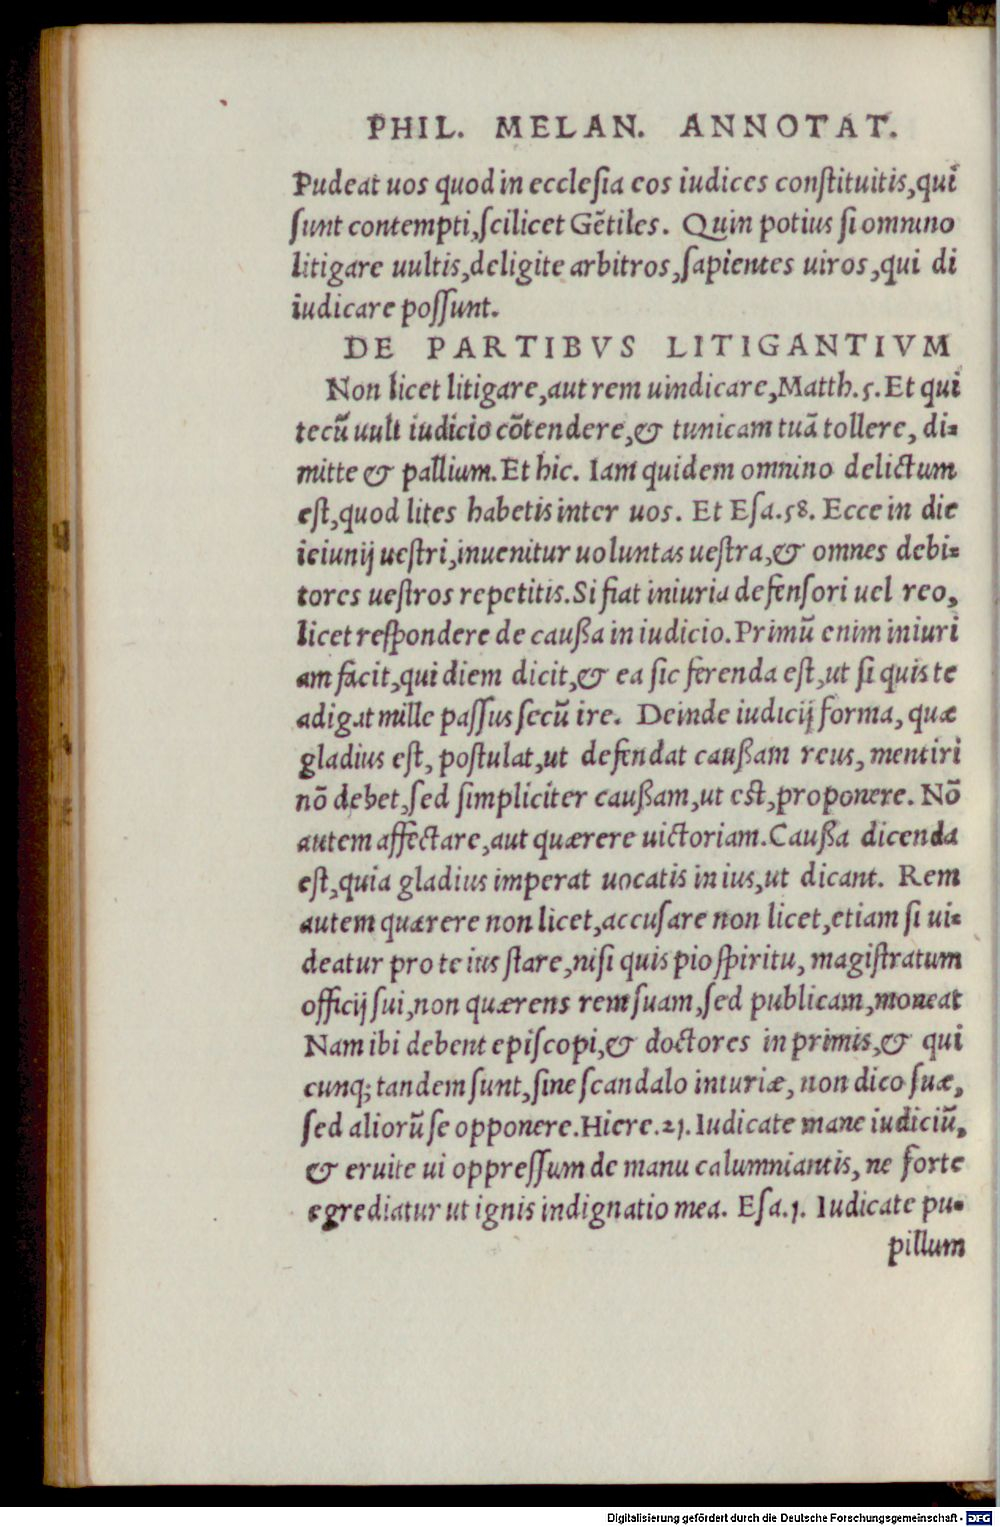 PHIL. MELAN. ANNOTAT.
Pudeat uos quod in ecclesia eos iudices constituitis, qui
sunt contempti, scilicet Gẽtiles. Quin potius si omnino
litigare uultis, deligite arbitros, sapientes uiros, qui di
iudicare possunt.
DE PARTIBVS LITIGANTIVM
Non licet litigare, aut rem uindicare, Matth. 5. Et qui
tecũ uult iudicio cõtendere, & tunicam tuã tollere, di-
mitte & pallium. Et hic. Iam quidem omnino delictum
est, quod lites habetis inter uos. Et Esa. 58. Ecce in die
ieiunij uestri, inuenitur uoluntas uestra, & omnes debi-
tores uestros repetitis. Si fiat iniuria defensori uel reo,
licet respondere de caußa in iudicio. Primũ enim iniuri
am facit, qui diem dicit, & ea sic ferenda est, ut si quis te
adigat mille passus secũ ire. Deinde iudicij forma, quæ
gladius est, postulat, ut defendat caußam reus, mentiri
nõ debet, sed simpliciter caußam, ut est, proponere. Nõ
autem affectare, aut quærere uictoriam. Caußa dicenda
est, quia gladius imperat uocatis in ius, ut dicant. Rem
autem quærere non licet, accusare non licet, etiam si ui-
deatur pro te ius stare, nisi quis pio spiritu, magistratum
officij sui, non quærens rem suam, sed publicam, moneat
Nam ibi debent episcopi, & doctores in primis, & qui
cunq; tandem sunt, sine scandalo iniuriæ, non dico suæ,
sed aliorũ se opponere. Hiere. 21. Iudicate mane iudiciũ,
& eruite ui oppressum de manu calumniantis, ne forte
egrediatur ut ignis indignatio mea. Esa. 1. Iudicate pu-
pillum
Digitalisierung gefördert durch die Deutsche Forschungsgemeinschaft - DFG